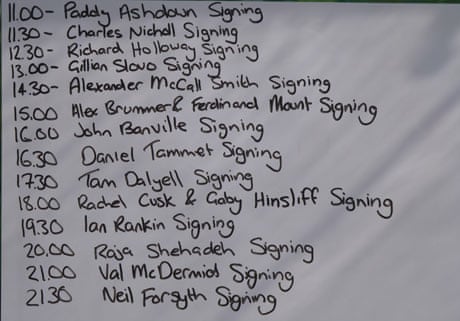 11.00- Paddy Ashdown Signing
11.30- Charles Nicholl Signing
12.30- Richard Holloway Signing
13.00- Gillian Slovo Signing
14.30- Alexander McCall Smith Signing
15.00 Alex Brummer & Ferdinand Mount Signing
16.00 John Banville Signing
16.30 Daniel Tammet Signing
17.30 Tam Dalyell Signing
18.00 Rachel Cusk & Gaby Hinsliff Signing
19.30 Ian Rankin Signing
20.00 Raja Shehadeh Signing
21.00 Val McDermid Signing
21.30 Neil Forsyth Signing